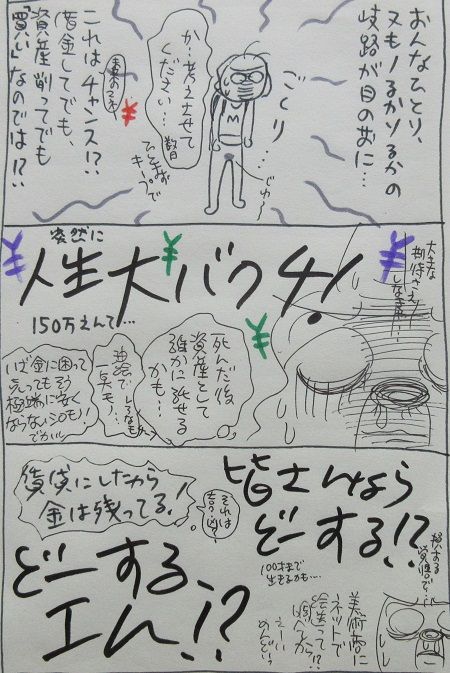 おんなひとり、
又もノるかソるかの
岐路が目の前に…
ごくり…
じゅ〜
M
か…考えさせて
ください…
数日
ひとまず
キープで
これはチャンス!?
借金してでも、
資産削ってでも
「買い」なのでは!?
¥
突然に
人生大バクチ!
¥
¥
¥
¥
150万えんて…
大きな
期待さえ
しなきゃ…
死んだ後
資産として
誰かに託せる
かも…
油絵で
一点モノ…
いざ金に困って
売ってもそう
極端に安く
ならないシロモノ!
でかいし
皆さんなら
どーする!?
100才まで
生きるかも…
賃貸にしたから
金は残ってる!
それは
吉?凶?
どーする、
エム!?
損する
覚悟で…
美術商に
ネットで
絵送って!?
えーい
めんどいっ